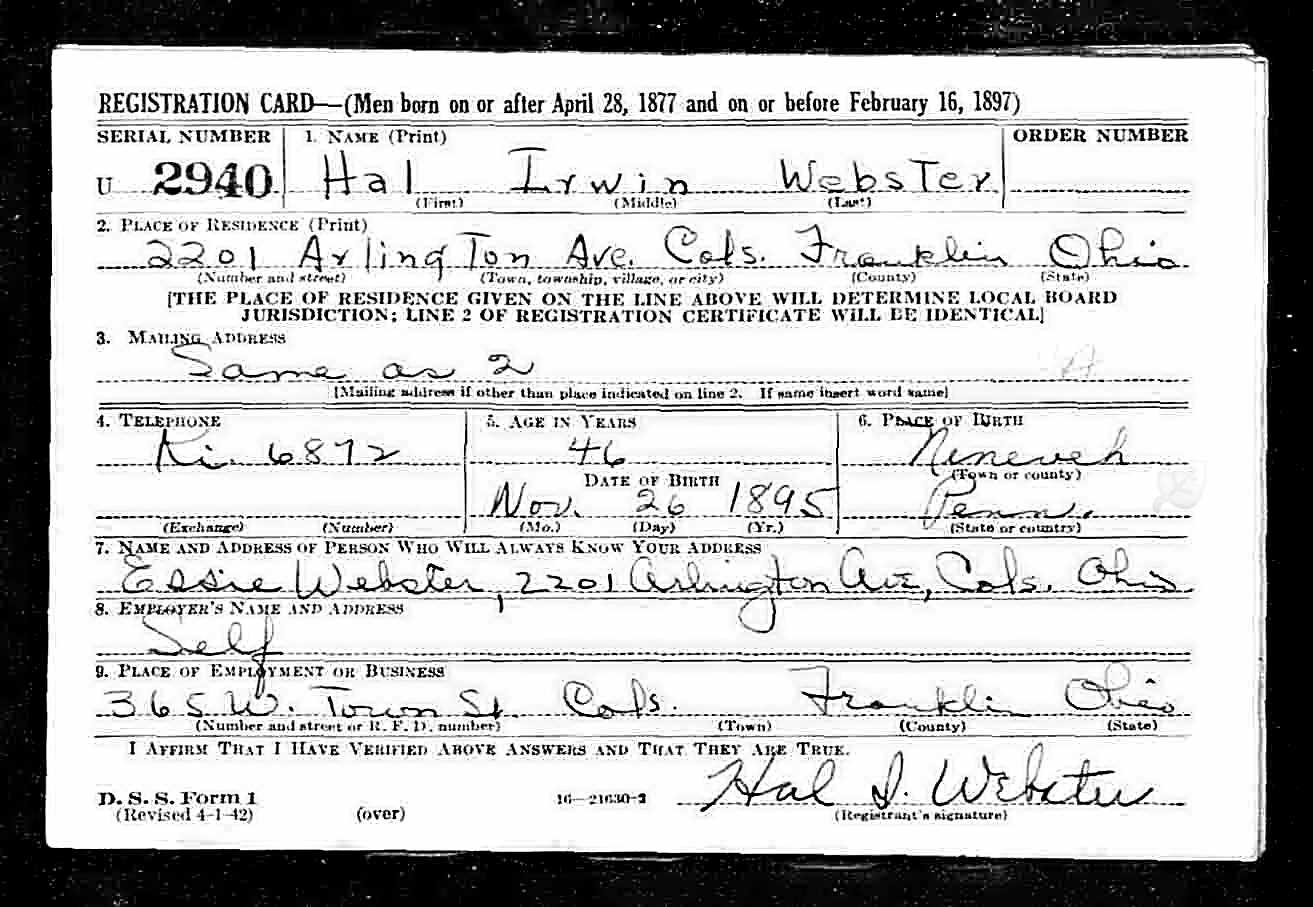 REGISTRATION CARD—(Men born on or after April 28, 1877 and on or before February 16, 1897)
SERIAL NUMBER 1. NAME (Print) ORDER NUMBER
U 2940 Hal Irwin Webster
(First) (Middle) (Last)
2. PLACE OF RESIDENCE (Print)
2201 Arlington Ave. Cols. Franklin Ohio
(Number and street) (Town, township, village, or city) (County) (State)
[THE PLACE OF RESIDENCE GIVEN ON THE LINE ABOVE WILL DETERMINE LOCAL BOARD
JURISDICTION; LINE 2 OF REGISTRATION CERTIFICATE WILL BE IDENTICAL]
3. MAILING ADDRESS
Same as 2
[Mailing address if other than place indicated on line 2. If same insert word same]
4. TELEPHONE 5. AGE IN YEARS 6. PLACE OF BIRTH
Ki. 6872 46 Nineveh
DATE OF BIRTH (Town or county)
Nov. 26 1895 Penn.
(Exchange) (Number) (Mo.) (Day) (Yr.) (State or country)
7. NAME AND ADDRESS OF PERSON WHO WILL ALWAYS KNOW YOUR ADDRESS
Essie Webster, 2201 Arlington Ave, Cols. Ohio
8. EMPLOYER'S NAME AND ADDRESS
Self
9. PLACE OF EMPLOYMENT OR BUSINESS
365 W. Town St. Cols. Franklin Ohio
(Number and street or R. F. D. number) (Town) (County) (State)
I AFFIRM THAT I HAVE VERIFIED ABOVE ANSWERS AND THAT THEY ARE TRUE.
Hal I. Webster
D. S. S. Form 1 16—21630-2
(Revised 4-1-42) (over) (Registrant's signature)